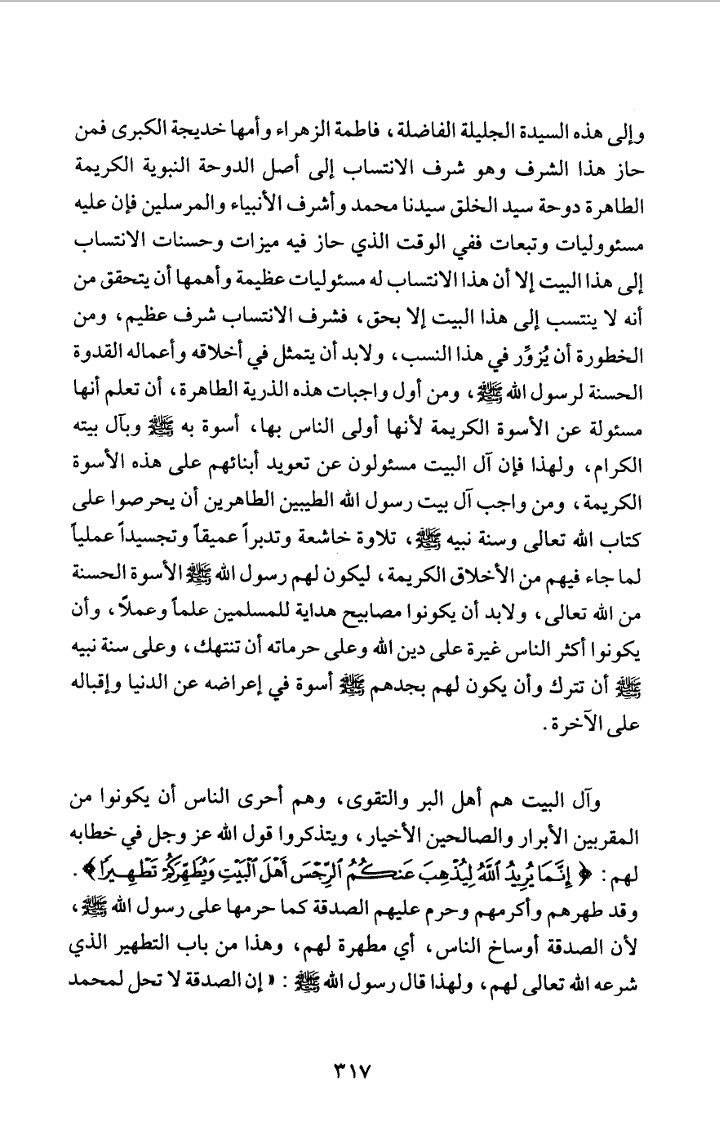 وإلى هذه السيدة الجليلة الفاضلة، فاطمة الزهراء وأمها خديجة الكبرى فمن
حاز هذا الشرف وهو شرف الانتساب إلى أصل الدوحة النبوية الكريمة
الطاهرة دوحة سيد الخلق سيدنا محمد وأشرف الأنبياء والمرسلين فإن عليه
مسئووليات وتبعات ففي الوقت الذي حاز فيه ميزات وحسنات الانتساب
إلى هذا البيت إلا أن هذا الانتساب له مسئوليات عظيمة وأهمها أن يتحقق من
أنه لا ينتسب إلى هذا البيت إلا بحق، فشرف الانتساب شرف عظيم، ومن
الخطورة أن يُزوِّر في هذا النسب، ولابد أن يتمثل في أخلاقه وأعماله القدوة
الحسنة لرسول الله ﷺ، ومن أول واجبات هذه الذرية الطاهرة، أن تعلم أنها
مسئولة عن الأسوة الكريمة لأنها أولى الناس بها، أسوة به ﷺ وبآل بيته
الكرام، ولهذا فإن آل البيت مسئولون عن تعويد أبنائهم على هذه الأسوة
الكريمة، ومن واجب آل بيت رسول الله الطيبين الطاهرين أن يحرصوا على
كتاب الله تعالى وسنة نبيه ﷺ، تلاوة خاشعة وتدبراً عميقاً وتجسيداً عملياً
لما جاء فيهم من الأخلاق الكريمة، ليكون لهم رسول الله ﷺ الأسوة الحسنة
من الله تعالى، ولابد أن يكونوا مصابيح هداية للمسلمين علماً وعملاً، وأن
يكونوا أكثر الناس غيرة على دين الله وعلى حرماته أن تنتهك، وعلى سنة نبيه
ﷺ أن تترك وأن يكون لهم بجدهم ﷺ أسوة في إعراضه عن الدنيا وإقباله
على الآخرة.
وآل البيت هم أهل البر والتقوى، وهم أحرى الناس أن يكونوا من
المقربين الأبرار والصالحين الأخيار، ويتذكروا قول الله عز وجل في خطابه
لهم: ﴿ إِنَّمَا يُرِيدُ ٱللَّهُ لِيُذْهِبَ عَنكُمُ ٱلرِّجْسَ أَهْلَ ٱلْبَيْتِ وَيُطَهِّرَكُمْ تَطْهِيرًا ﴾.
وقد طهرهم وأكرمهم وحرم عليهم الصدقة كما حرمها على رسول الله ﷺ،
لأن الصدقة أوساخ الناس، أي مطهرة لهم، وهذا من باب التطهير الذي
شرعه الله تعالى لهم، ولهذا قال رسول الله ﷺ: «إن الصدقة لا تحل لمحمد
٣١٧